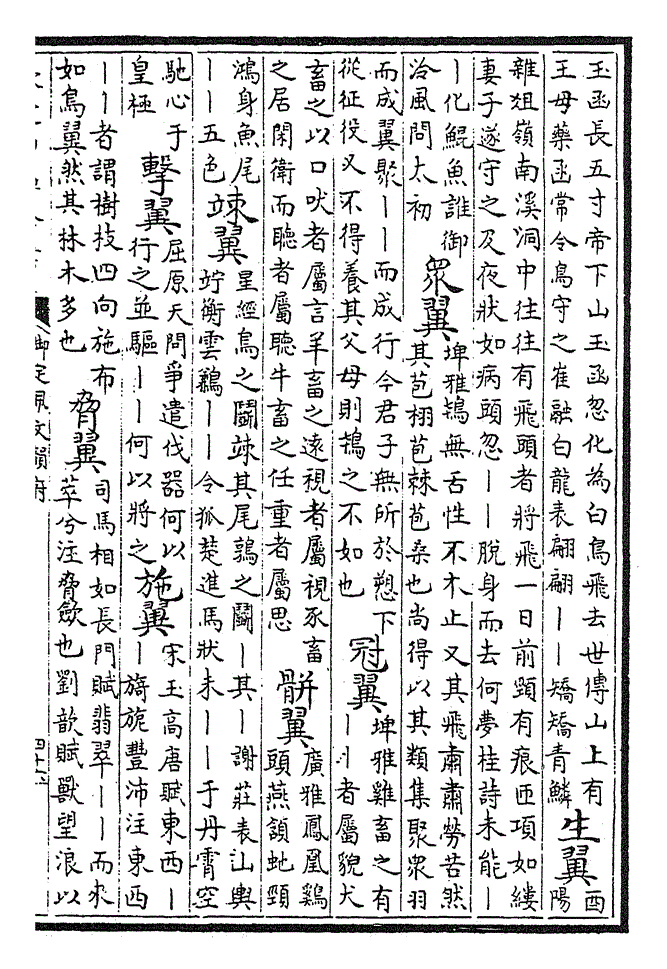 玉函長五寸帝下山玉函忽化為白鳥飛去世傳山上有
王母藥函常令鳥守之崔融白龍表翩翩丨丨矯矯青鱗
生翼
酉
陽
雜俎嶺南溪洞中往往有飛頭者將飛一日前頸有痕匝項如縷
妻子遂守之及夜狀如病頭忽丨丨脫身而去何夢桂詩未能丨
丨化鯤魚誰御
泠風問太初
眾翼
埤雅鴇無舌性不木止又其飛肅肅勞苦然
其苞栩苞棘苞桑也尚得以其類集聚眾羽
而成翼聚丨丨而成行今君子無所於愬下
從征役又不得養其父母則鴇之不如也
冠翼
埤雅雞畜之有
丨丨者屬貌犬
畜之以口吠者屬言羊畜之遠視者屬視豕畜
之居閑衛而聽者屬聽牛畜之任重者屬思
骿翼
廣雅鳳凰雞
頭燕頷虵頸
鴻身魚尾
丨丨五色
竦翼
星經鳥之鬬竦其尾鶉之鬬丨其丨謝莊表山輿
竚衡雲鷁丨丨令狐楚進馬狀未丨丨于丹霄空
馳心于
皇極
擊翼
屈原天問爭遣伐器何以
行之並驅丨丨何以將之
施翼
宋玉高唐賦東西丨
丨旖旎豐沛注東西
丨丨者謂樹枝四向施布
如鳥翼然其林木多也
脅翼
司馬相如長門賦翡翠丨丨而來
萃兮注脅斂也劉歆賦獸望浪以
御定佩文韻府